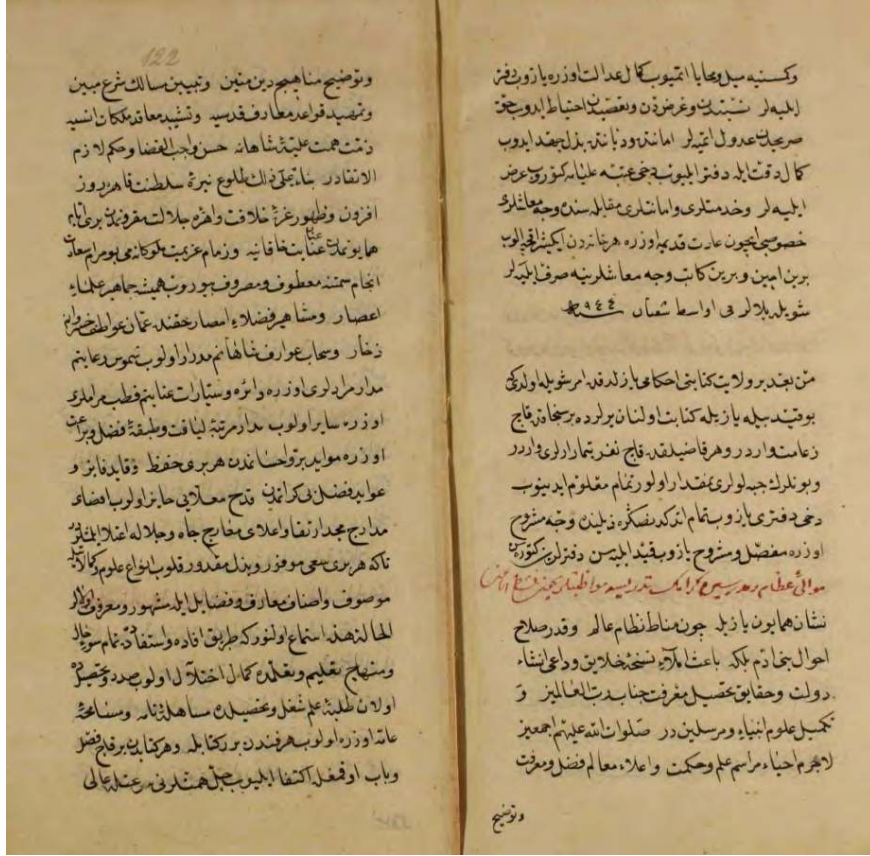 وكمسنیه میل ومحابا اتمیوب كمال عدالت اوزره یازوب دفتر
ایلیه لر وغرض دن وتعصبدن احتیاط ایدوب حق
صریحدن عدول اتمیه لر امانت ودیانتده بذل جهد ایدوب
كمال دقت ایله دفتر عتبه علیامه كتوروب عرض
ایلیه لر وخدمتلری وامانتلری مقابله سنده وجه معاشلری
خصوصیچون عادت قدیمه اوزره هر خانه دن ایكیشر اقچه الوب
برین امین وبرین كاتب وجه معاشلرینه صرف ایلیه لر
شویله بلالر فی اواسط شعبان سنه ٩٤٤
من بعد بر ولایت كتابتی احكامی یازلدقده امر شویله اولدی كه
بو قید بیله یازیله كتابت اولنان یرلرده بر سنجاقده قاچ
زعامت واردر وهر قاضیلقده قاچ نفر تیمار ارلری واردر
وبونلرك جبه لولری نمقدار اولور تمام معلوم ایدینوب
دخی دفتری یازوب تمام اتدكدنصكره ذیلنده وجه مشروح
اوزره مفصل ومشروح یازوب قید ایلیه سن دفترلرین كتوره سن
موالئ عظام ومدرسین كرامك تدریسه مواظبتلریچون
نشان همایون یازیله چون مناط نظام عالم وقدر صلاح
احوال بنی ادم بلكه باعث املاء نسخۀ خلایق وداعی انشاء
دولت وحقایق تحصیل معرفت جناب رب العالمین و
تكمیل علوم انبیاء ومرسلین در صلوات الله علیهم اجمعین
لاجرم احیاء مراسم علم وحكمت واعلاء معالم فضل ومعرفت
وتوضیح
122
وتوضیح مناهج دین متین وتبیین مسالك شرع مبین
وتمهید قواعد معارف قدسیه وتشیید معاقد ملكات انسیه
ذمت همت علیۀ شاهانه حسن واجب القضا وحكم لازم
الانقادر بناء علی ذلك طلوع نیرۀ سلطنت قاهره روز
افزون وظهور غرۀ خلافت واهره جلالت مقرونمدن بری
همایونمدن عنان عنایت خاقانیه وزمام عزیمت ملوكانه می بو مرام سعادت
انجام سمتنه معطوف ومصروف بیوروب همیشه جماهیر علماء
اعصار ومشاهیر فضلاء امصار حقنده عمان عواطف خسروانه
ذخار وسحاب عوارف شاهانم مدرار اولوب شموس رعایتم
مدار مرادلری اوزره دائره وسیارات عنایتم قطب مراملری
اوزره سایر اولوب مدار مرتبۀ لیاقت وطبقۀ فضل وبراعت
اوزره مواید بر واحساندن هر بری حفظ وفایده فایز و
عواید فضل بی كراندن قدح معلایی حایز اولوب اقصاء
مدارج مجد ارتقا واعلای معارج جاه وجلاله اعتلا
تاكه هر بری سعی موفور وبذل مقدور قلوب انواع علوم وكمالات
موصوف واصناف معارف وفضایل ایله مشهور ومعروف اولالر
الحالة هذه استماع اولنور كه طریق افاده واستفاده تمام
ومنهاج تعلیم وتعلمده كمال اختلال اولوب صدد تحصیلده
اولان طلبۀ علم شغل وتحصیلده مساهلۀ تامه ومسامحۀ
عامه اوزره اولوب هر فندن بر كتابله وهر كتابدن بر قاچ فصل
وباب اوقمغله اكتفا ایلیوب جل همتلرنی